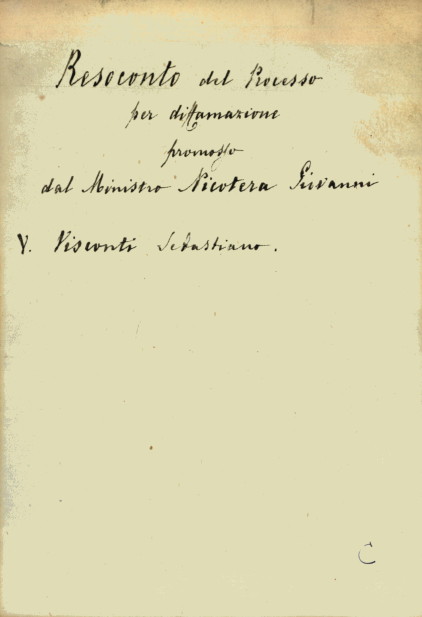 Resoconto del Processo
per diffamazione
promosso
dal Ministro Nicotera Giovanni
V. Visconti Sebastiano.
C